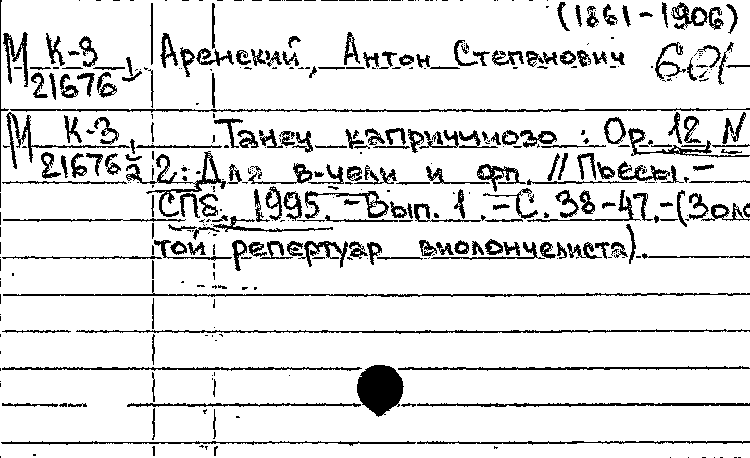 (1861-1906)
М К-3 Аренский, Антон Степанович
21676
М К-3 Танец каприччиозо : Op. 12, N
21676 2: Для в-чели и фп. // Пьесы.-
СПб., 1995. - Вып. 1. - С. 38-47.-(Золо
той репертуар виолончелиста).